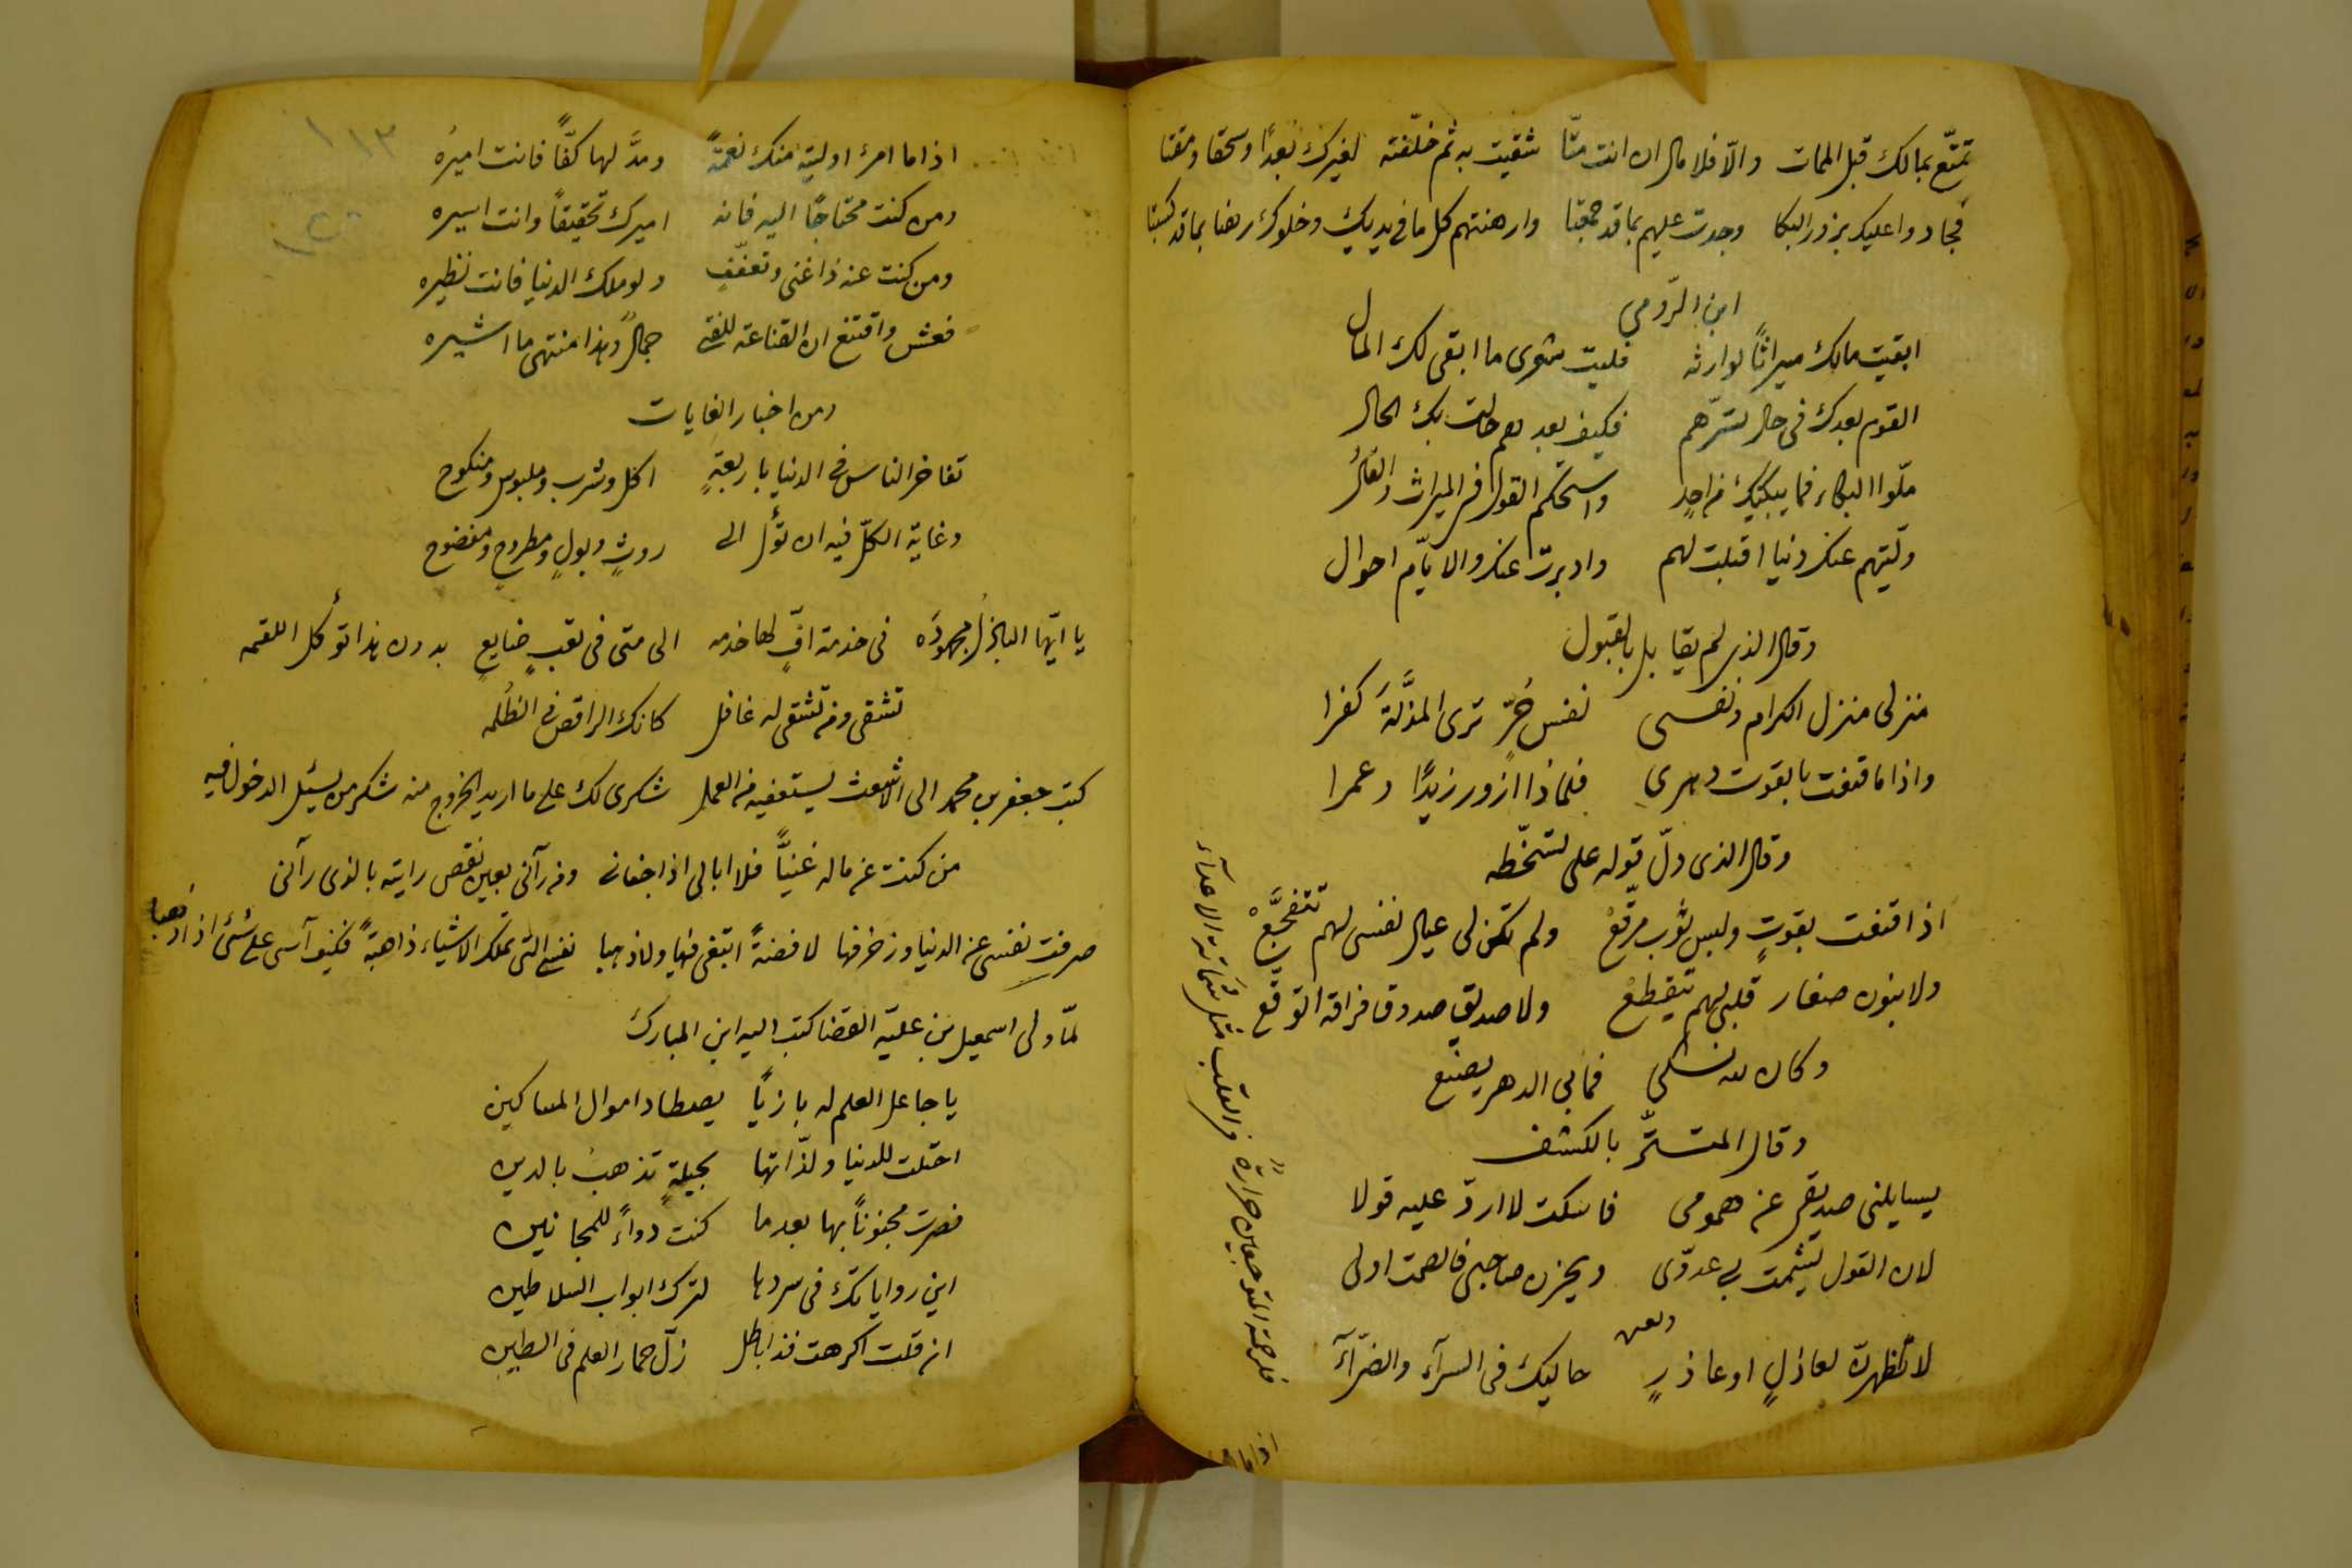 تمتّع بمالك قبل الممات والّا فلا مال ان انت متّا شقيت به ثم خلّفته لغيرك بعدًا وسحقا ومقتا
فجادوا عليك بزور البكا وجدت عليهم بما قد جمعتا وارهنتهم كل ما في يديك وخلوك رهنا بما قد كسبتا
ابن الرّومي
ابقيت مالك ميراثًا لوارثه فليت شعري ما ابقى لك المال
القوم بعدك في حال تسرّهم فكيف بعدهم حالت بك الحال
ملّوا البكاء فما يبكيك من احدٍ واستحكم القول في الميراث والقالُ
ولّتهم عنك دنيا اقبلت لهم وادبرت عنك والايّام احوال
وقال الذي لم يقابل بالقبول
منزلى منزل الكرام ونفسى نفس حُرٍّ ترى المذلّةَ كفرا
واذا ما قنعت بالقوت دهرى فلماذا ازور زيدًا وعمرا
وقال الذى دلّ قوله على تسخّطه
اذا قنعت بقوتٍ ولبس ثوب مرقّعْ ولم تكن لى عيال نفسى لهم تتفجّعْ
ولا بنون صغار قلبى لهم يتقطعْ ولا صديق صدوق فراقه اتوقّع
وكان لله شغلى فما بى الدهر يصنع
وقال المتستّر بالكشف
يسايلنى صديقى عن همومى فاسكت لا اردّ عليه قولا
لان القول يشمت بى عدوّى ويحزن صاحبى فالصمت اولى
ولغيره
لا تظهرنّ لعاذلٍ او عاذرٍ حاليك فى السرآء والضرّآء
فلرحمة المتوجعين حرارةً فى القلب مثل شماتة الاعدآء
اذا ما
١١٣
اذا ما امرء اوليته منك نعمةً ومدَّ لها كفّاً فانت اميرُه
ومن كنت محتاجًا اليه فانه اميرك تحقيقاً وانت اسيره
ومن كنت عنه ذا غنى وتعفّفٍ ولو ملك الدنيا فانت نظيره
فعش واقتنع ان القناعة للفتى جمال وهذا منتهى ما اشيره
ومن اخبار الغايات
تفاخر الناس في الدنيا باربعةٍ اكل وشرب وملبوس ومنكوح
وغاية الكلّ فيه ان تؤل الى روثٍ وبولٍ ومطروحٍ ومفضوح
يا ايّها الباذل مجهودَه فى خدمة افٍّ لها خدمه الى متى فى تعبٍ ضايعٍ بدون هذا تؤكل اللقمه
تشقى ومن تشقى له غافل كانك الراقص في الظُلمه
كتب جعفر بن محمد الى الاشعث يستعفيه من العمل شكرى لك على ما اريد الخروج منه شكر من يسئل الدخول فيه
من كنت عن ماله غنيًّا فلا ابالى اذا جفانى ومن رآنى بعين نقص رايته بالذى رآنى
صرفت نفسى عن الدنيا وزخرفها لا فضةً ابتغى فيها ولا ذهبا نفسى التى تملك الاشياء ذاهبةً فكيف آسى على شئ اذا ذهبا
لمّا ولى اسمعيل بن عليّة القضا كتب اليه ابن المبارك
يا جاعل العلم له بازيًا يصطاد اموال المساكين
احتلت للدنيا ولذّاتها بحيلةٍ تذهبُ بالدين
فصرت مجنوناً بها بعد ما كنت دواءً للمجانين
اين رواياتك فى سردها لترك ابواب السلاطين
ان قلت اكرهت فذا باطل زلّ حمار العلم فى الطين